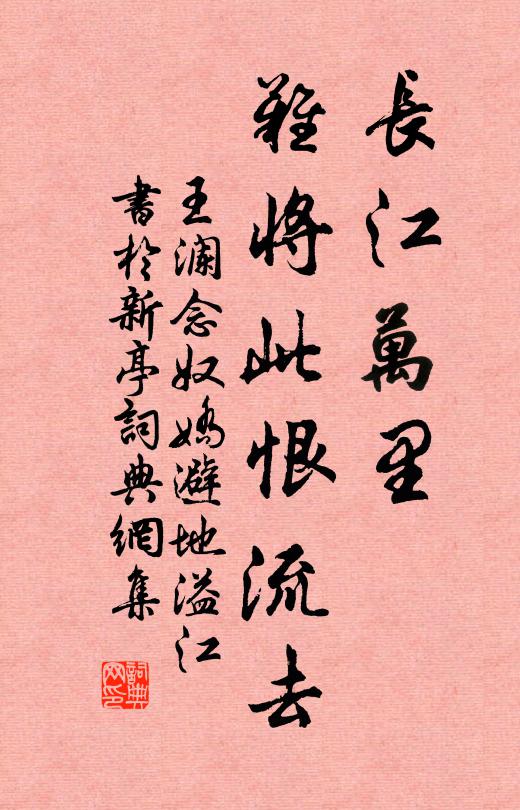 長江萬里
難將此恨流去
王瀾念奴嬌避地溢江
書於新亭詞典網集
詞典
网印